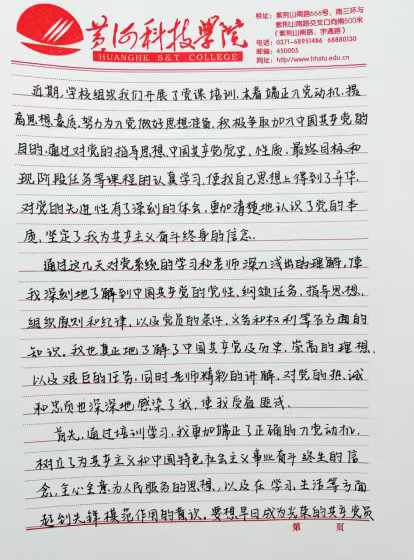 黄河科技学院
HUANGHE S&T COLLEGE
校址：紫荆山南路666号，南三环与
紫荆山南路交叉口向南500米
（紫荆山南路，宇通路）
电话：0371-68951486 68880130
邮编：450005
网址：http://www.hhstu.edu.cn
近期，学校组织我们开展了党课培训，本着端正入党动机，提
高思想素质，努力为入党做好思想准备，积极争取加入中国共产党的
目的，通过对党的指导思想、中国共产党党史、性质、最终目标和
现阶段任务等课程的认真学习，使我自己思想上得到了升华，
对党的先进性有了深刻的体会，更加清楚地认识了党的本
质，坚定了我为共产主义奋斗终身的信念。
通过这几天对党系统的学习和老师深入浅出的理解，使
我深刻地了解到中国共产党的党性、纲领任务、指导思想、
组织原则和纪律，以及党员的条件、义务和权利等各方面的
知识。我也真正地了解了中国共产党及历史、崇高的理想，
以及艰巨的任务，同时老师精彩的讲解，对党的热诚
和忠贞也深深地感染了我，使我受益匪浅。
首先，通过培训学习，我更加端正了正确的入党动机，
树立了为共产主义和中国特色社会主义事业奋斗终生的信
念，全心全意为人民服务的思想，以及在学习生活等方面
起到先锋模范作用的意识。要想早日成为光荣的共产党员
第 页